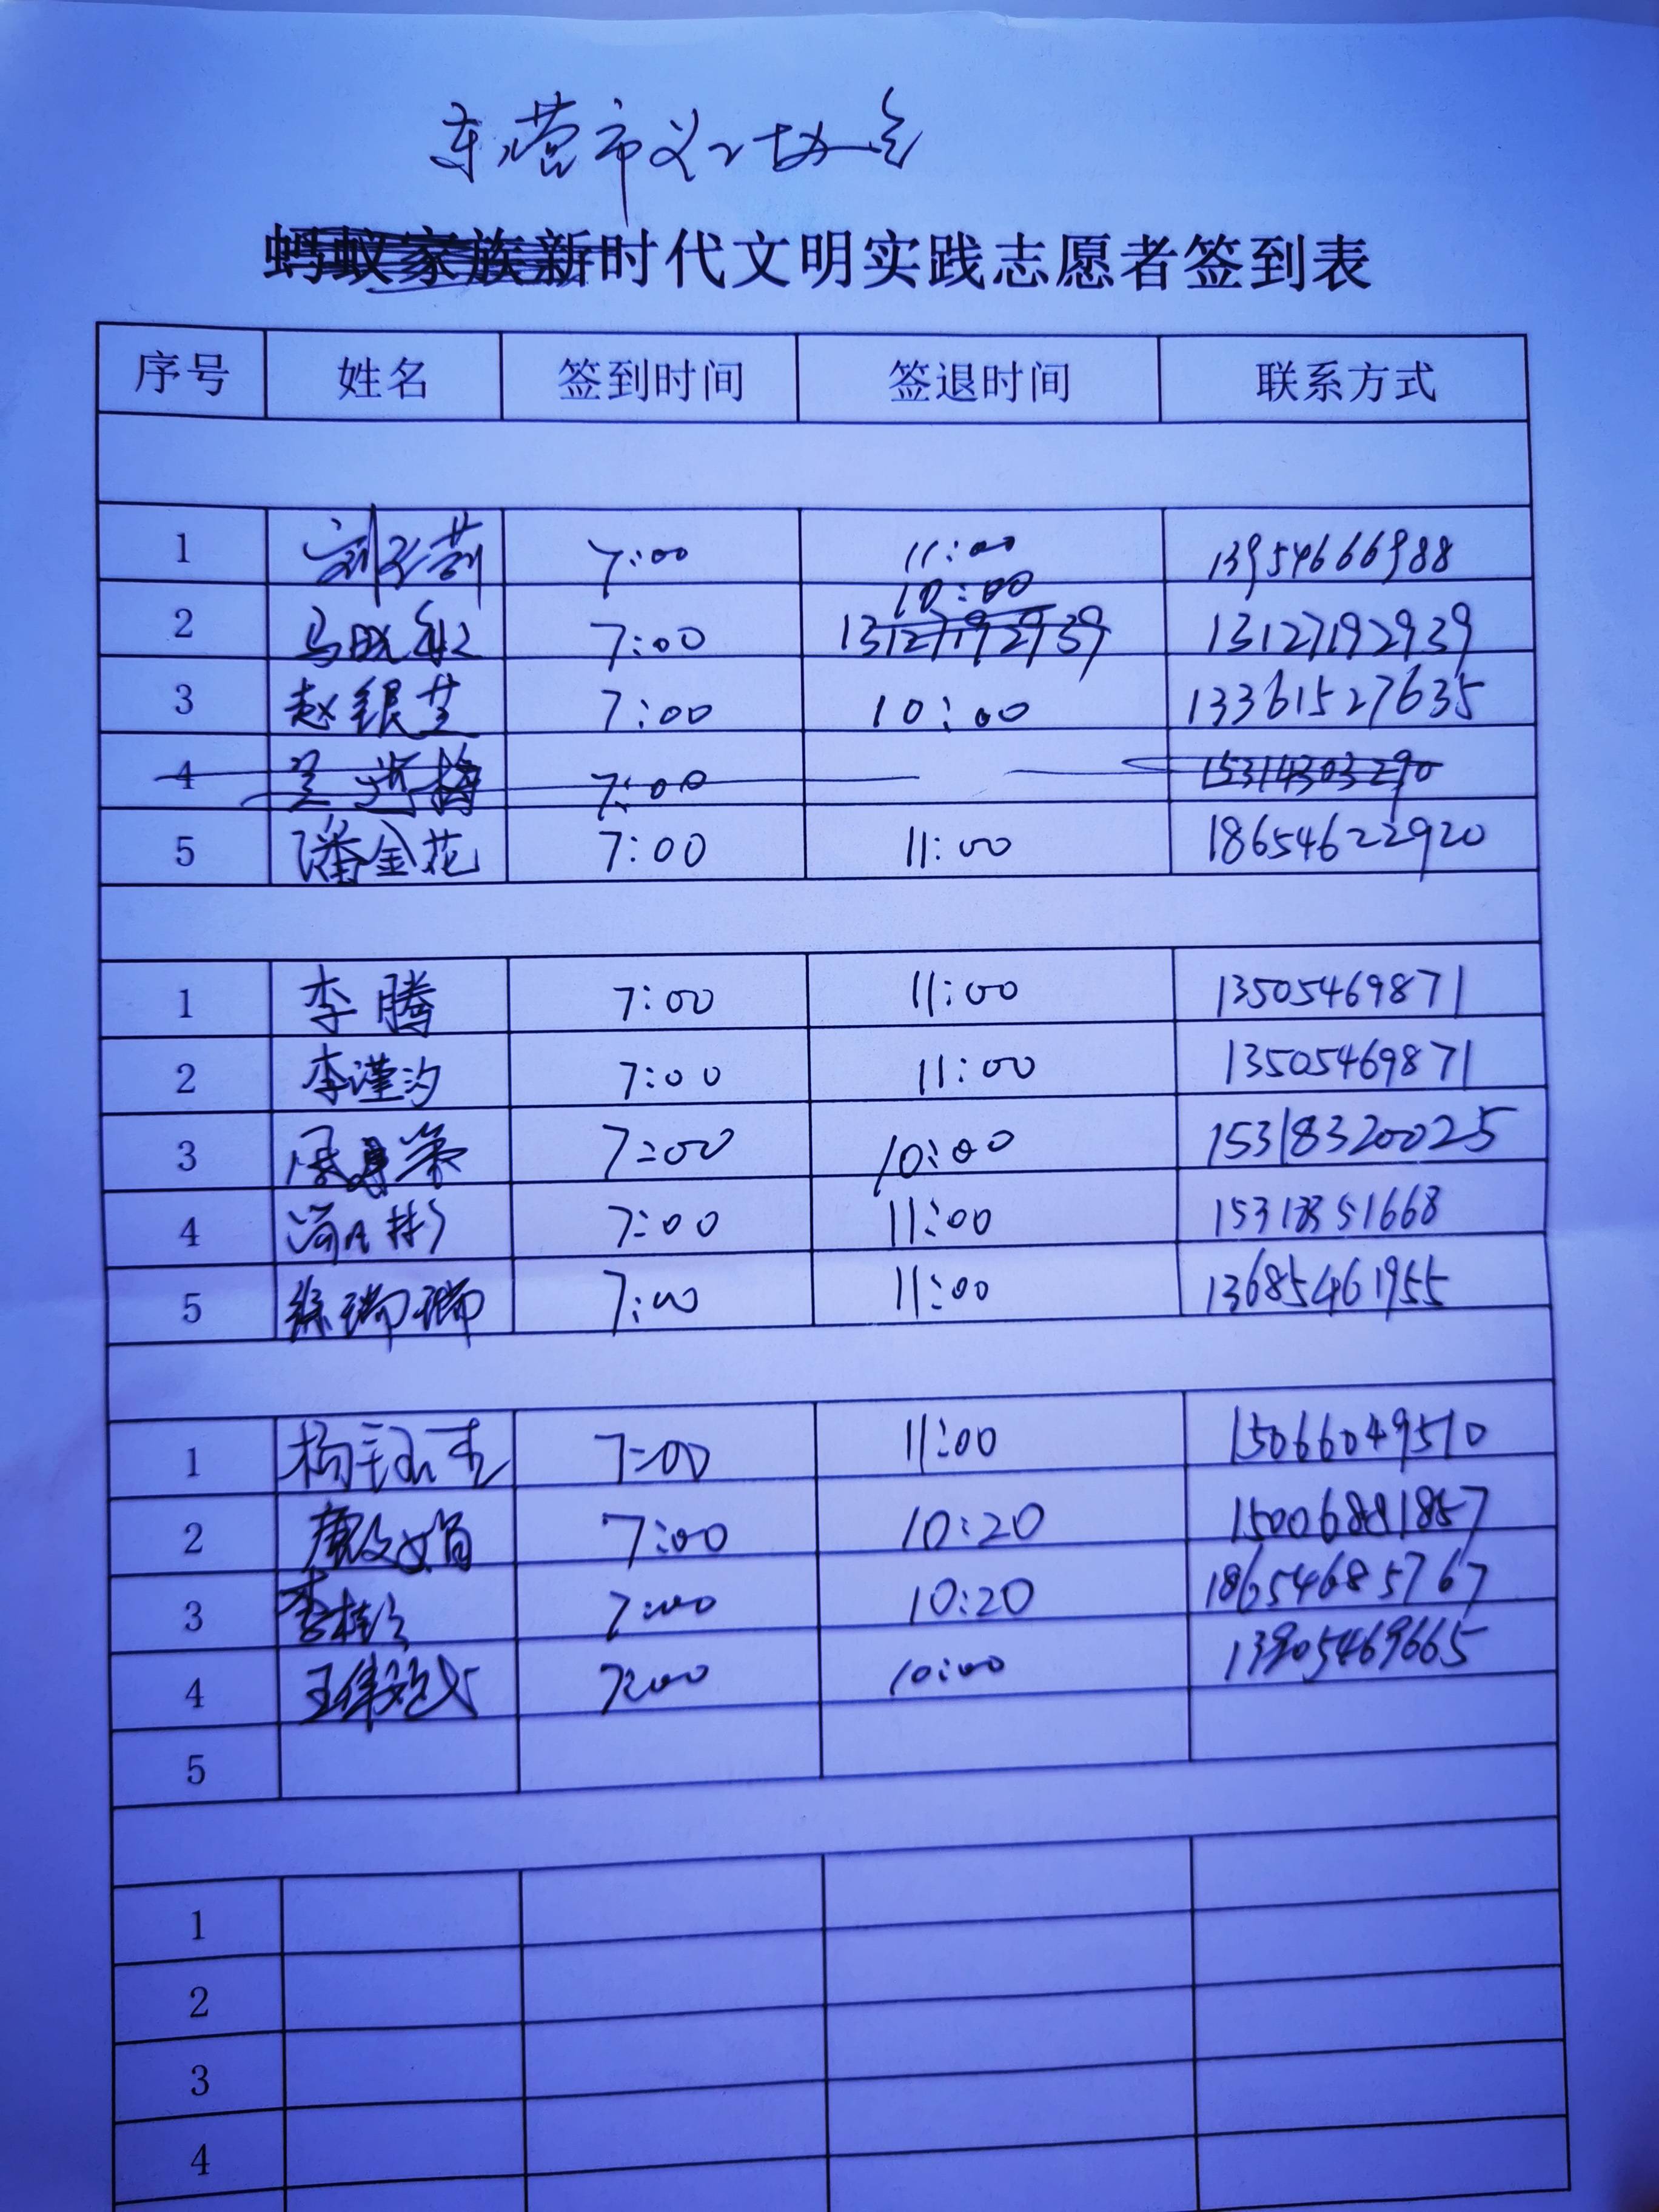 东营市义工协会
蚂蚁家族新时代文明实践志愿者签到表
序号 姓名 签到时间 签退时间 联系方式
1 7:00 11:00 13954666988
10:00
2 7:00 13127192939 13127192939
3 赵银芝 7:00 10:00 13361527635
4 7:00 15314303290
5 潘金花 7:00 11:00 18654622920
1 李腾 7:00 11:00 13505469871
2 李谨汐 7:00 11:00 13505469871
3 7:00 10:00 15318320025
4 7:00 11:00
5 徐瑞瑞 7:00 11:00 13685461955
1 7:00 11:00 15066049510
2 7:00 10:20 15006881857
3 7:00 10:20 18654685767
4 7:00 10:00 13905469665
5
1
2
3
4